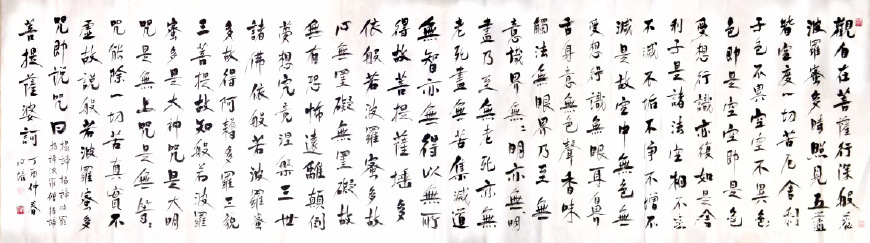 觀自在菩薩行深般若
波羅蜜多時照見五蘊
皆空度一切苦厄舍利
子色不異空空不異色
色即是空空即是色
受想行識亦復如是舍
利子是諸法空相不生
不滅不垢不淨不增不
減是故空中無色無
受想行識無眼耳鼻
舌身意無色聲香味
觸法無眼界乃至無
意識界無〻明亦無明
盡乃至無老死亦無
老死盡無苦集滅道
無智亦無得以無所
得故菩提薩埵多
依般若波羅蜜多故
心無罣礙無罣礙故
無有恐怖遠離顛倒
夢想究竟涅槃三世
諸佛依般若波羅蜜
多故得阿耨多羅三藐
三菩提故知般若波羅
蜜多是大神咒是大明
咒是無上咒是無等〻
咒能除一切苦真實不
虛故說般若波羅蜜多
咒即說咒曰
揭諦揭諦波羅
揭諦波羅僧揭諦
菩提薩婆訶
丁酉仲春